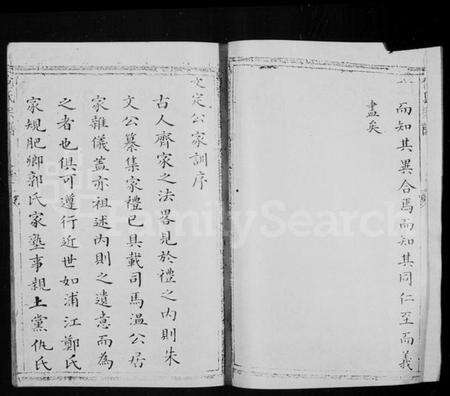 而知其異合焉而知其同仁至而義
盡矣
文定公家訓序
古人齊家之法畧見於禮之內則朱
文公纂集家禮已具載司馬温公居
家雜儀蓋亦祖述內則之遺意而為
之者也俱可遵行近世如浦江鄭氏
家規肥鄉郭氏家塾事親上黨仇氏
FamilySearch